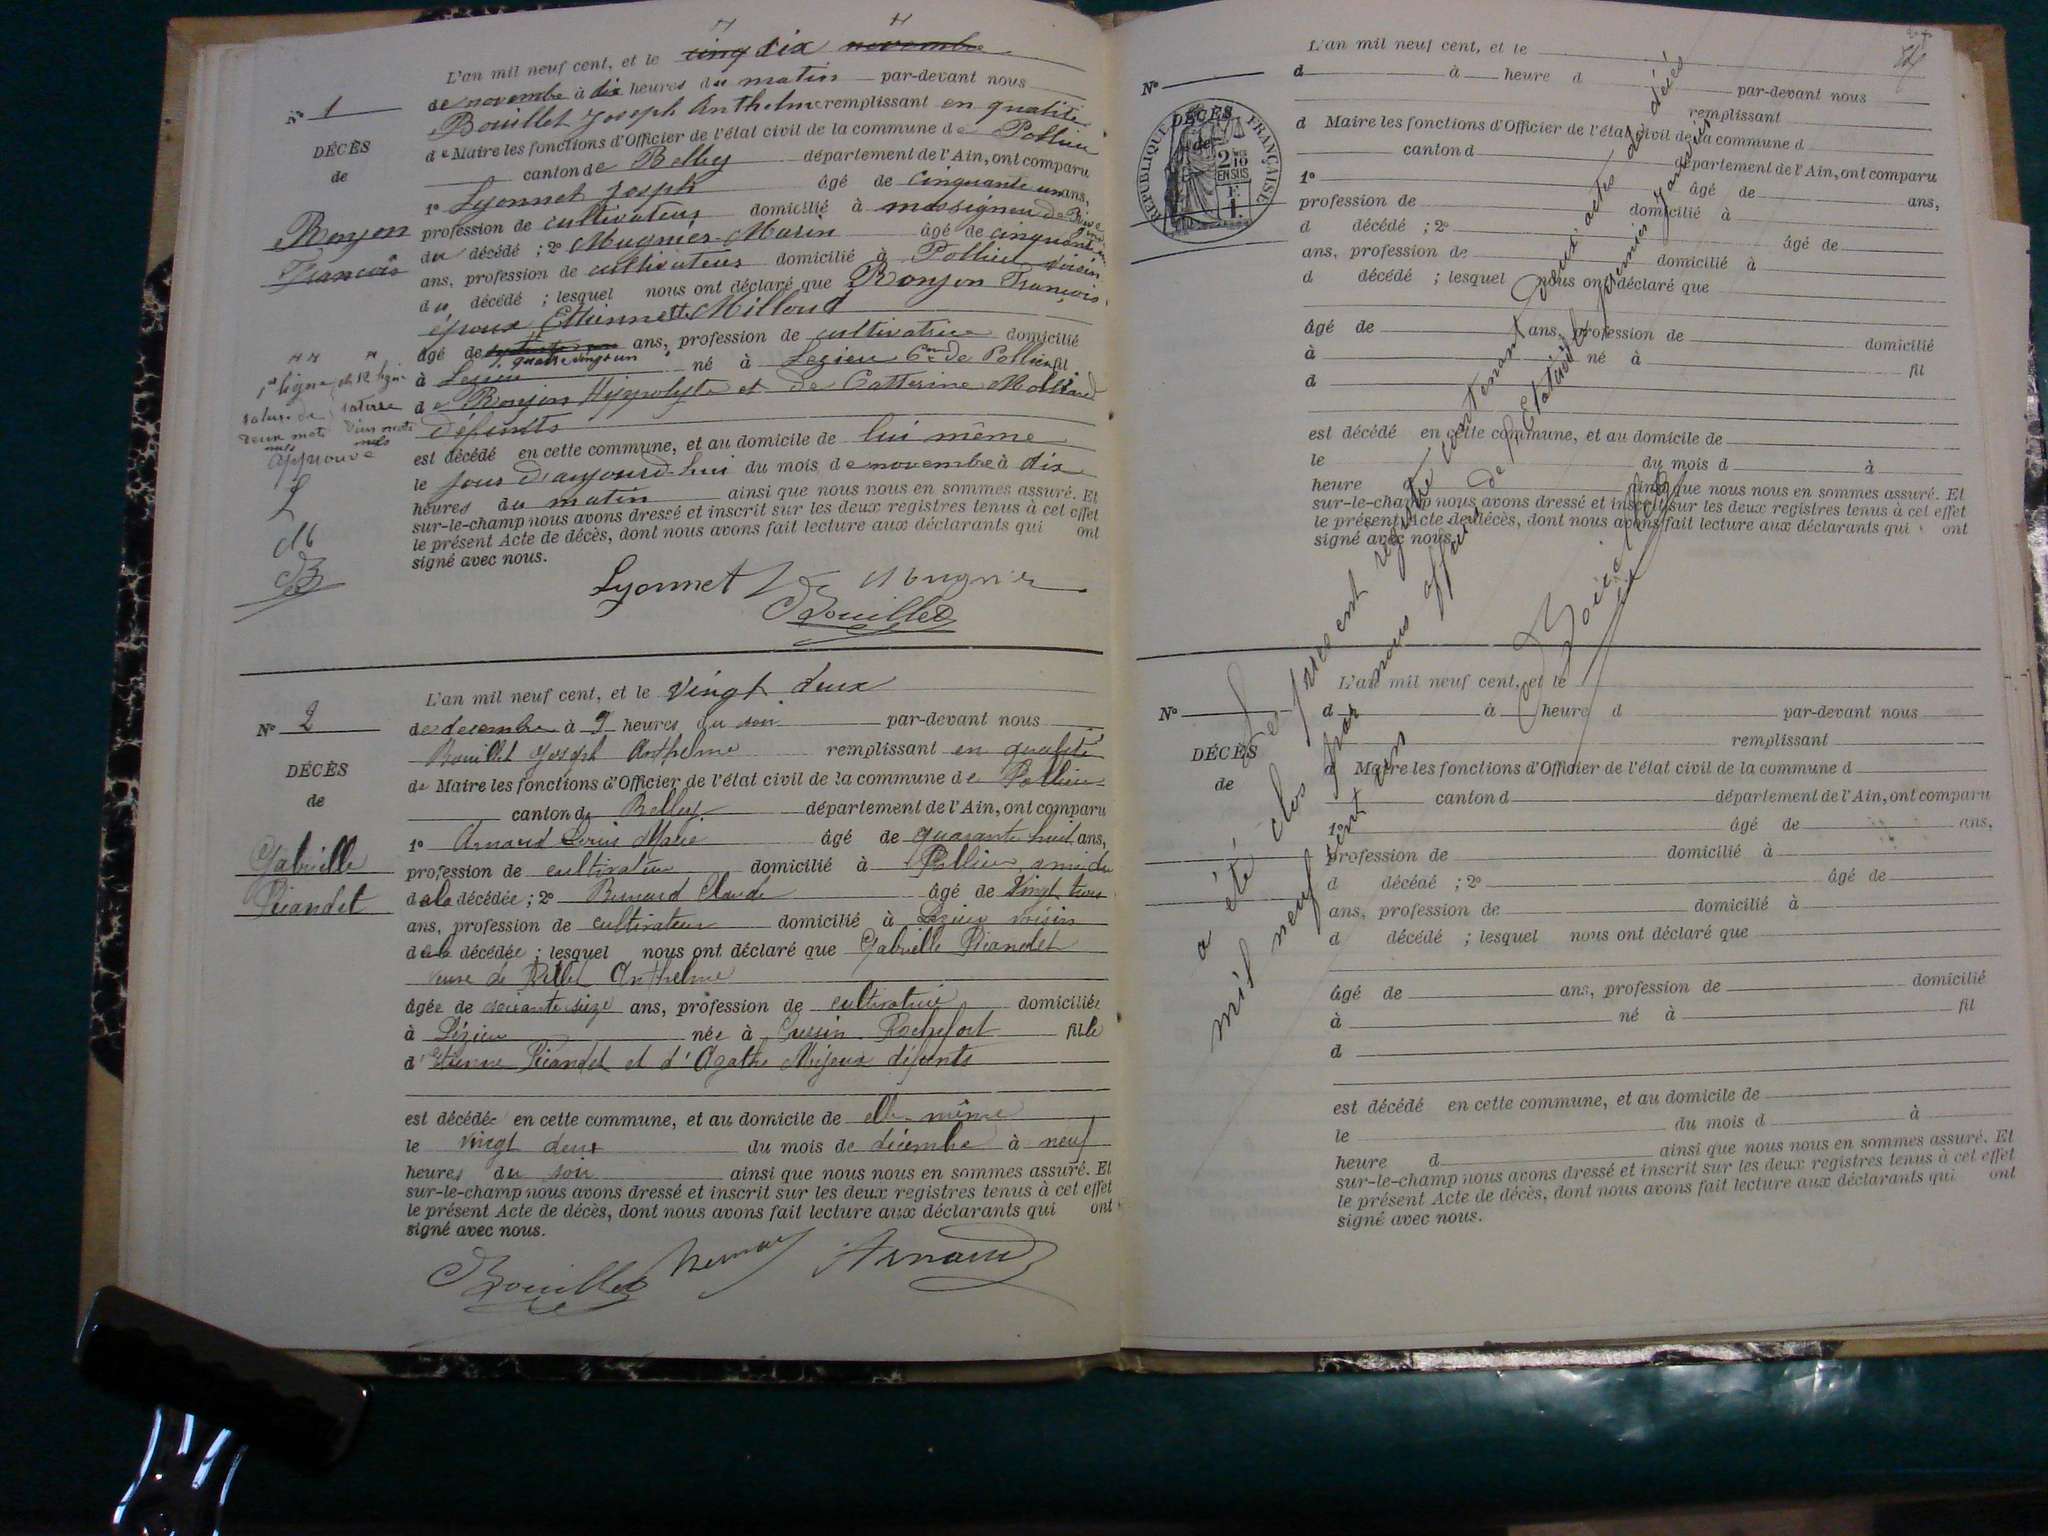 L'an mil neuf cent, et le cinq six novembre
Nº 1
de novembre à dix heures du matin par-devant nous
Bouillet Joseph Anthelme remplissant en qualité
DÉCÈS
de Maire les fonctions d'Officier de l'état civil de la commune de Pollieu
de
canton de Belley département de l'Ain, ont comparu
1º Lyonnet Joseph âgé de cinquante un ans,
profession de cultivateur domicilié à
Ronjon
François
du décédé ; 2º Mugnier Marin âgé de cinquante
ans, profession de cultivateur domicilié à Pollieu voisin
du décédé ; lesquel nous ont déclaré que Ronjon François
époux Etiennette Milloud
âgé de quatre vingt un ans, profession de cultivatrice domicilié
à Lezieu né à Lezieu Cne de Pollieu fil
de Ronjon Hippolyte et de Catterine
défunts
1re ligne et 12 ligne
rature de rature
deux mots d'un mots
nuls nuls
approuvé
L
M
B
est décédé en cette commune, et au domicile de lui même
le jour d'aujourd'hui du mois de novembre à dix
heures du matin ainsi que nous nous en sommes assuré. Et
sur-le-champ nous avons dressé et inscrit sur les deux registres tenus à cet effet
le présent Acte de décès, dont nous avons fait lecture aux déclarants qui ont
signé avec nous.
Lyonnet J Mugnier
Bouillet
L'an mil neuf cent, et le vingt deux
Nº 2
de decembre à 9 heures du soir par-devant nous
Bouillet Joseph Anthelme remplissant en qualité
DÉCÈS
de Maire les fonctions d'Officier de l'état civil de la commune de Pollieu
de
canton de Belley département de l'Ain, ont comparu
1º Arnaud Louis Marie âgé de quarante huit ans,
Gabrielle
Piandet
profession de cultivateur domicilié à Pollieu ami du
de la décédée ; 2º Bernard Claude âgé de vingt trois
ans, profession de cultivateur domicilié à Lezieu voisin
de la décédée ; lesquel nous ont déclaré que Gabrielle Piandet
veuve de Billet Anthelme
âgée de soixante seize ans, profession de cultivatrice domiciliée
à Lézieu née à Cressin Rochefort fille
d'Etienne Piandet et d'Agathe Mijoux défunts
est décédée en cette commune, et au domicile de elle même
le vingt deux du mois de décembre à neuf
heures du soir ainsi que nous nous en sommes assuré. Et
sur-le-champ nous avons dressé et inscrit sur les deux registres tenus à cet effet
le présent Acte de décès, dont nous avons fait lecture aux déclarants qui ont
signé avec nous.
Bouillet Bernard Arnaud
L'an mil neuf cent, et le
Nº
d à heure d par-devant nous
remplissant
DÉCÈS
de
RÉPUBLIQUE FRANÇAISE
2/10 EN SUS
F. 1.
d Maire les fonctions d'Officier de l'état civil de la commune d
canton d département de l'Ain, ont comparu
1º âgé de ans,
profession de domicilié à
d décédé ; 2º âgé de
ans, profession de domicilié à
d décédé ; lesquel nous ont déclaré que
âgé de ans, profession de domicilié
à né à fil
d
est décédé en cette commune, et au domicile de
le du mois d à
heure d ainsi que nous nous en sommes assuré. Et
sur-le-champ nous avons dressé et inscrit sur les deux registres tenus à cet effet
le présent Acte de décès, dont nous avons fait lecture aux déclarants qui ont
signé avec nous.
Le présent registre contenant deux actes de décés
a été clos par nous officier de l'Etat civil le premier janvier
mil neuf cent un
Bouillet
L'an mil neuf cent, et le
Nº
d à heure d par-devant nous
remplissant
DÉCÈS
d Maire les fonctions d'Officier de l'état civil de la commune d
de
canton d département de l'Ain, ont comparu
1º âgé de ans,
profession de domicilié à
d décédé ; 2º âgé de
ans, profession de domicilié à
d décédé ; lesquel nous ont déclaré que
âgé de ans, profession de domicilié
à né à fil
d
est décédé en cette commune, et au domicile de
le du mois d à
heure d ainsi que nous nous en sommes assuré. Et
sur-le-champ nous avons dressé et inscrit sur les deux registres tenus à cet effet
le présent Acte de décès, dont nous avons fait lecture aux déclarants qui ont
signé avec nous.